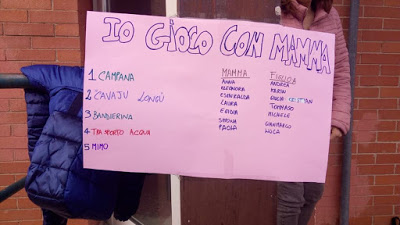 IO GIOCO CON MAMMA
MAMMA FIGLIO/A
1 CAMPANA
2 CAVAJU LONGU
3 BANDIERINA
4 TRASPORTO ACQUA
5 MIMO
ANNA ANDREA
ELEONORA KEVIN
ESMERALDA CRISTIAN
LAURA TOMMASO
ELIDIA MICHELE
SIMONA GIANMARCO
PAOLA LUCA